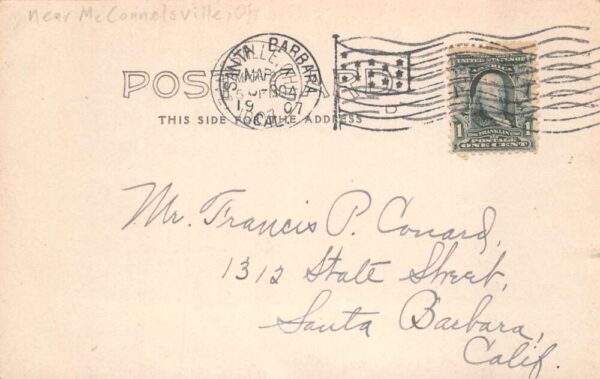 near McConnelsville, OH
SANTA BARBARA
MAR
19 07
CAL
POST
THIS SIDE FOR THE ADDRESS
UNITED STATES OF
AMERICA
1 FRANKLIN 1
POSTAGE
ONE CENT
Mr. Francis P. Conard,
1312 State Street,
Santa Barbara,
Calif.